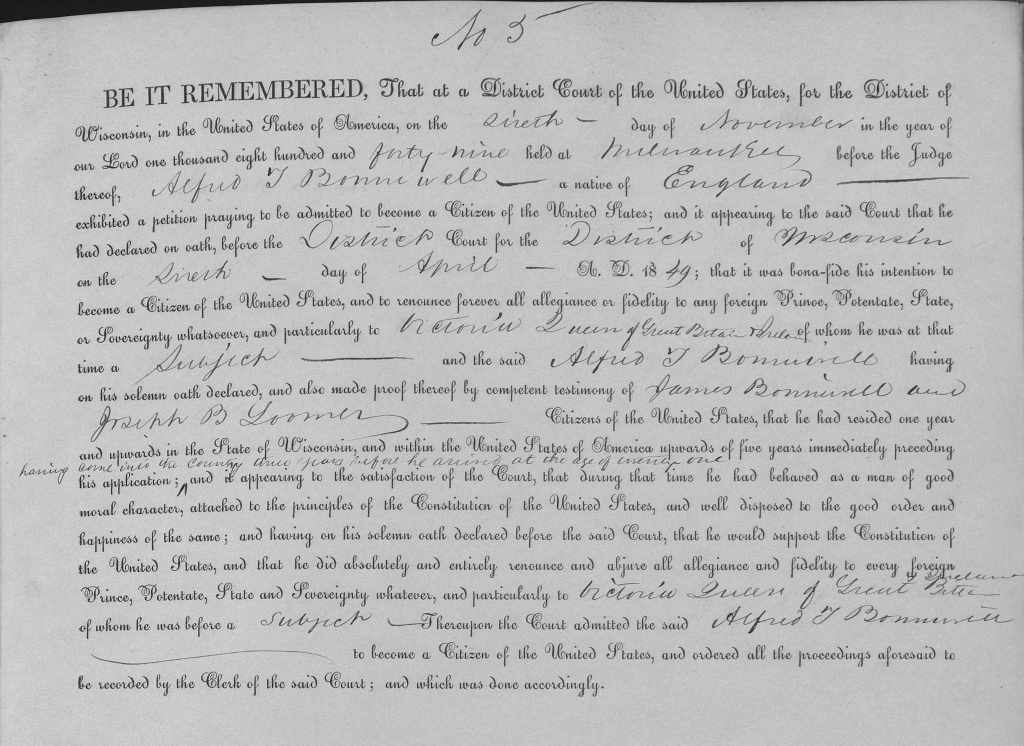 No 5
BE IT REMEMBERED, That at a District Court of the United States, for the District of
Wisconsin, in the United States of America, on the Sixth day of November in the year of
our Lord one thousand eight hundred and forty-nine held at Milwaukee before the Judge
thereof, Alfred T Bonniwell — a native of England —
exhibited a petition praying to be admitted to become a Citizen of the United States; and it appearing to the said Court that he
had declared on oath, before the District Court for the District of Wisconsin
on the Sixth — day of April — A. D. 1849; that it was bona-fide his intention to
become a Citizen of the United States, and to renounce forever all allegiance or fidelity to any foreign Prince, Potentate, State,
or Sovereignty whatsoever, and particularly to Victoria Queen of Great Britain & Ireland of whom he was at that
time a Subject — and the said Alfred T Bonniwell having
on his solemn oath declared, and also made proof thereof by competent testimony of James Bonniwell and
Joseph B Loomer — Citizens of the United States, that he had resided one year
and upwards in the State of Wisconsin, and within the United States of America upwards of five years immediately preceding
having come into the Country three years before he arrived at the age of twenty one
his application; and it appearing to the satisfaction of the Court, that during that time he had behaved as a man of good
moral character, attached to the principles of the Constitution of the United States, and well disposed to the good order and
happiness of the same; and having on his solemn oath declared before the said Court, that he would support the Constitution of
the United States, and that he did absolutely and entirely renounce and abjure all allegiance and fidelity to every foreign
Prince, Potentate, State and Sovereignty whatever, and particularly to Victoria Queen of Great Britain & Ireland
of whom he was before a Subject — Thereupon the Court admitted the said Alfred T Bonniwell
to become a Citizen of the United States, and ordered all the proceedings aforesaid to
be recorded by the Clerk of the said Court; and which was done accordingly.